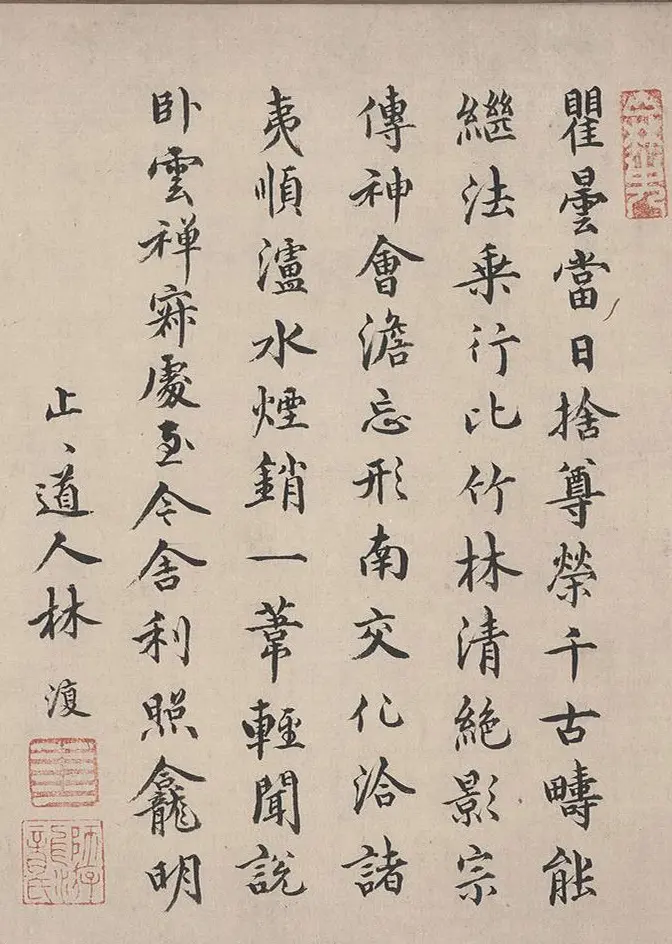 瞿曇當日捨尊榮千古疇能
繼法乗行比竹林清絶影宗
傳神會澹忘形南交化洽諸
夷順瀘水煙銷一葦輕聞說
卧雲禅寂處至今舍利照龕明
止〻道人林復